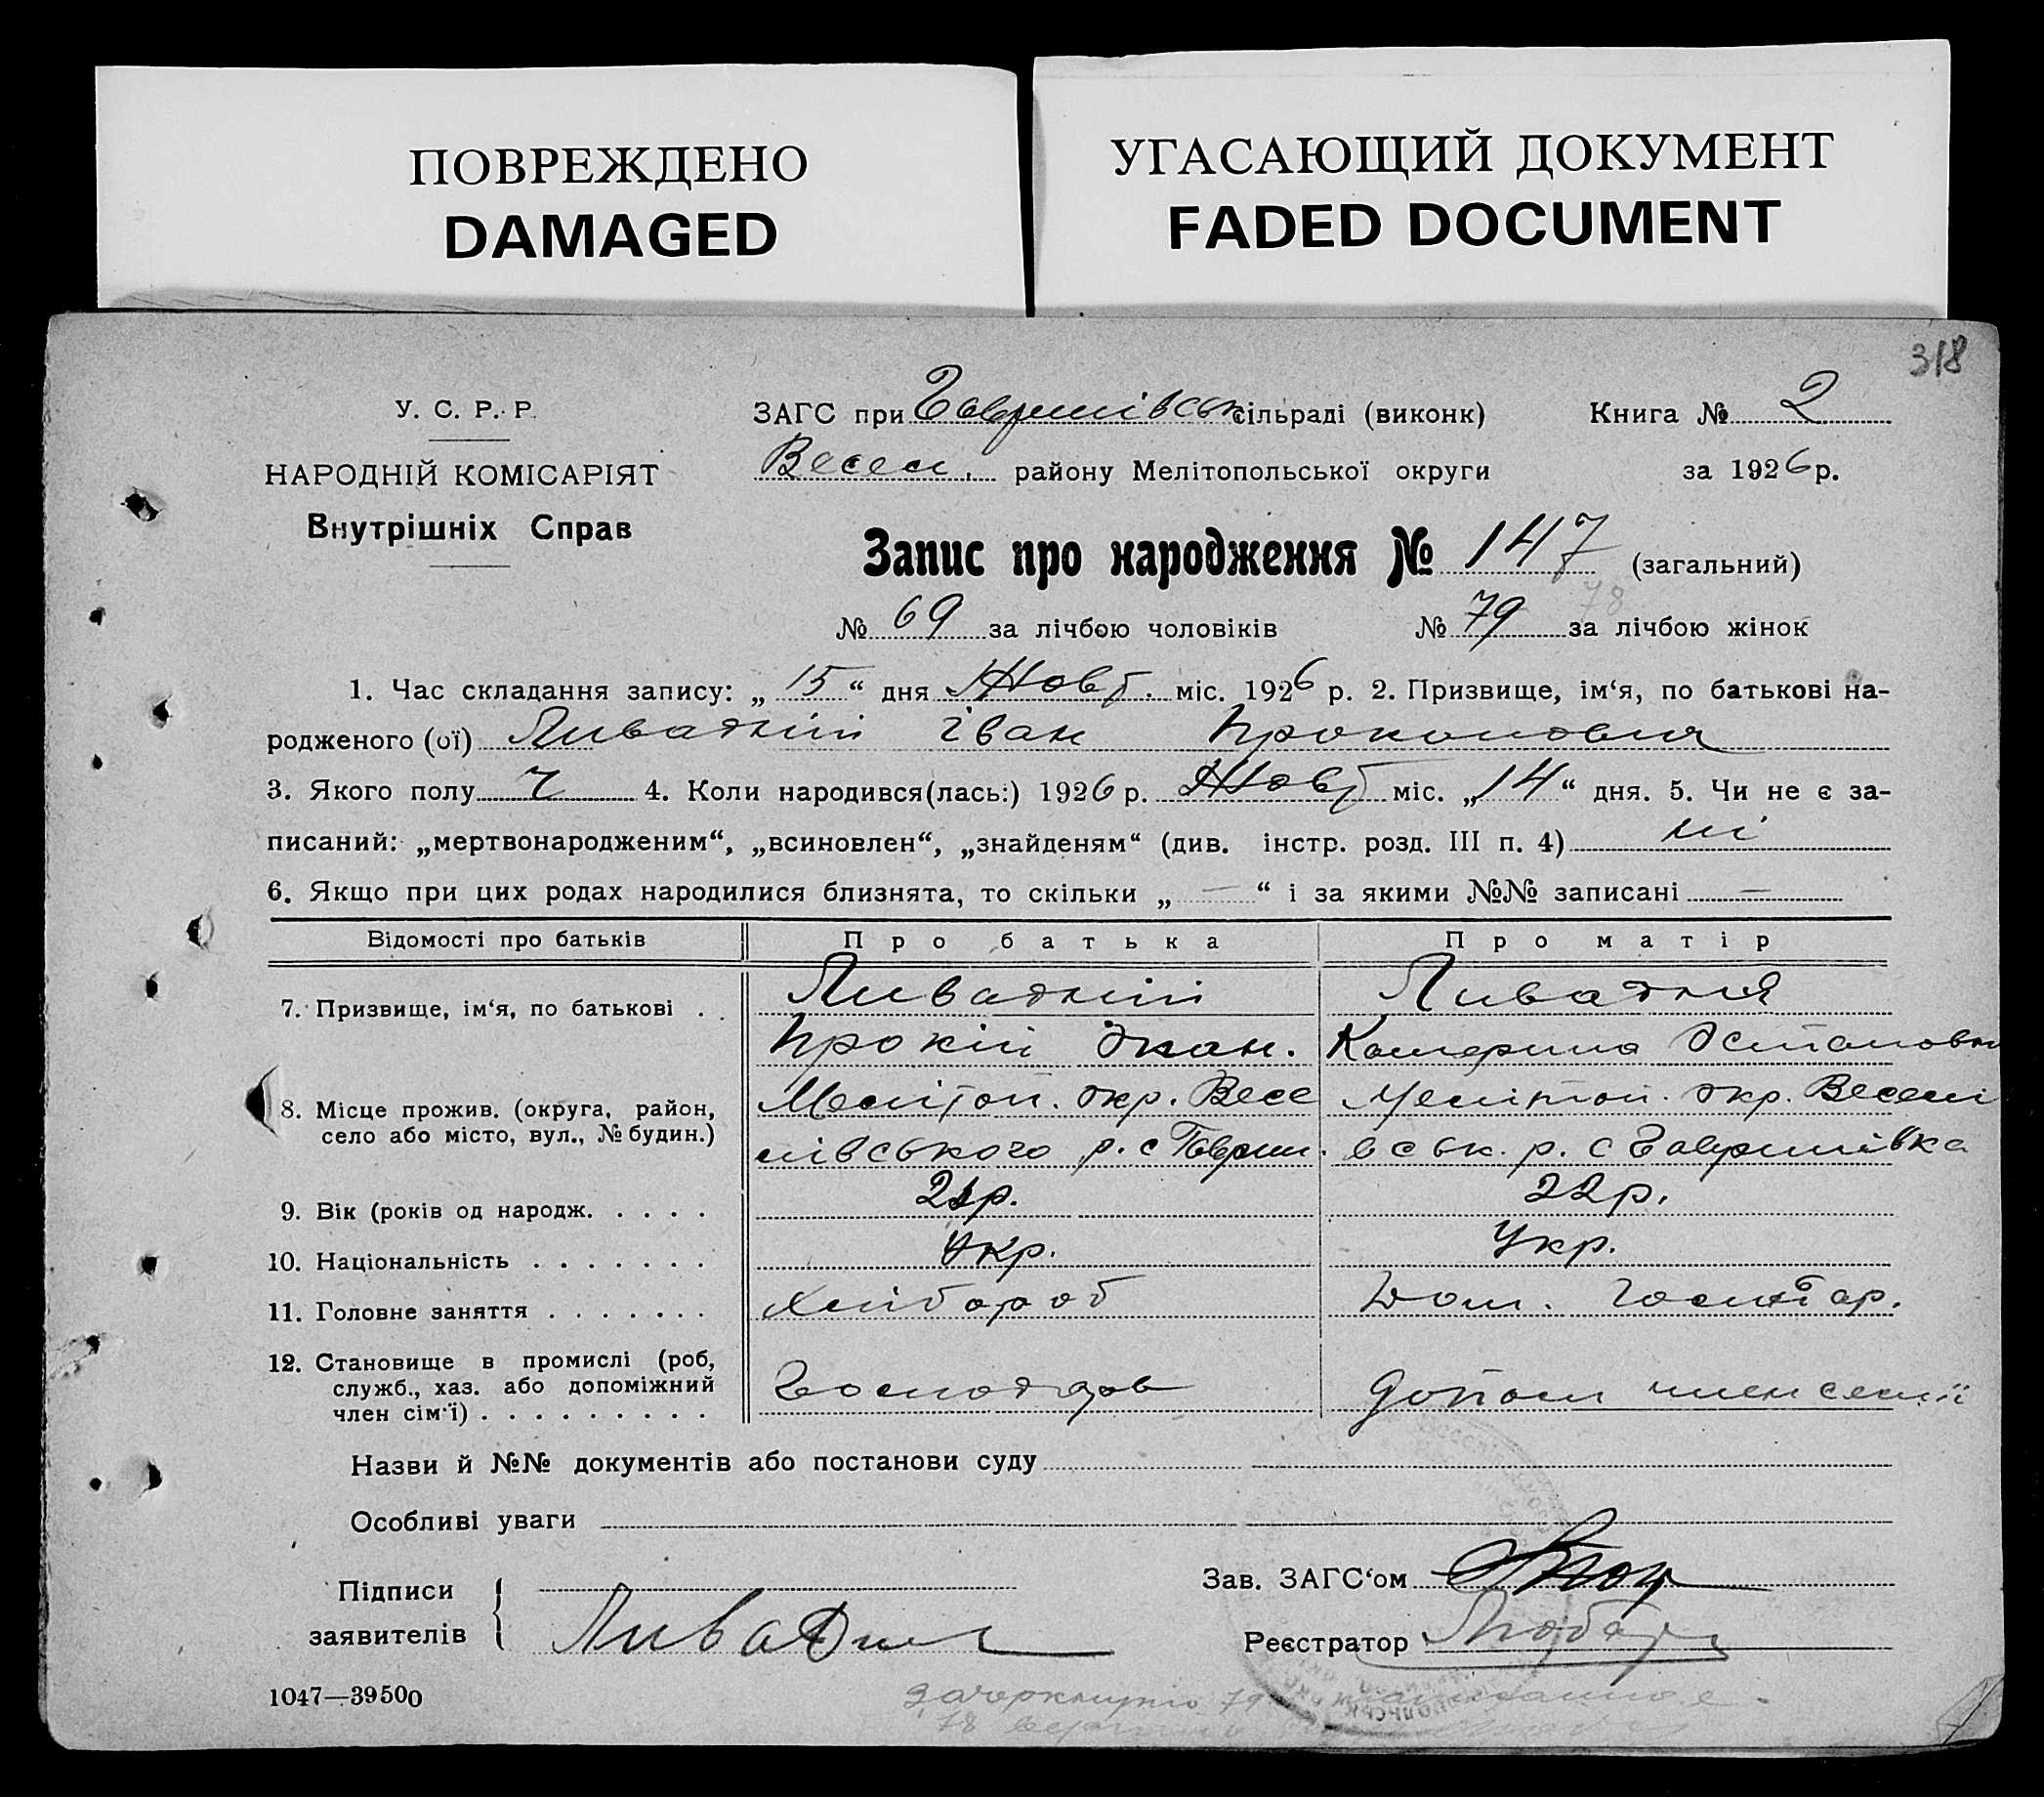 ПОВРЕЖДЕНО
DAMAGED
УГАСАЮЩИЙ ДОКУМЕНТ
FADED DOCUMENT
318
У. С. Р. Р.
НАРОДНІЙ КОМІСАРІЯТ
Внутрішніх Справ
ЗАГС при Гаврилівськ сільраді (виконк) Книга № 2
Весел. району Мелітопольської округи за 1926 р.
Запис про народження № 147 (загальний)
78
№ 69 за лічбою чоловіків № 79 за лічбою жінок
1. Час складання запису: „ 15 “ дня Жовт. міс. 1926 р. 2. Призвище, ім‘я, по батькові на-
родженого (ої) Ливадній Іван Прокопович
3. Якого полу ч 4. Коли народився(лась:) 1926 р. Жовт міс. „ 14 “ дня. 5. Чи не є за-
писаний: „мертвонародженим“, „всиновлен“, „знайденям“ (див. інстр. розд. III п. 4) ні
6. Якщо при цих родах народилися близнята, то скільки „ — “ і за якими №№ записані —
Відомості про батьків Про батька Про матір
7. Призвище, ім‘я, по батькові . . Ливадній Ливадня
Прокіп Катерина Остаповн
8. Місце прожив. (округа, район, село або місто, вул., № будин.) Мелітоп. окр. Весе Меліптоп. окр. Веселі
лівського р. с Гаврил. вськ. р. с Гаврилівка
9. Вік (років од народж. . . . . р. 22 р.
10. Національність . . . . . . . Укр. Укр.
11. Головне заняття . . . . . . . Хлібороб Дом. господар.
12. Становище в промислі (роб, служб., хаз. або допоміжний член сім‘ї) . . . . . . . . . Господар допом член семиї
Назви й №№ документів або постанови суду
Особливі уваги
Підписи
заявителів
Ливадни
Зав. ЗАГС‘ом
Реєстратор
1047—39500
зачеркнуто 79
78